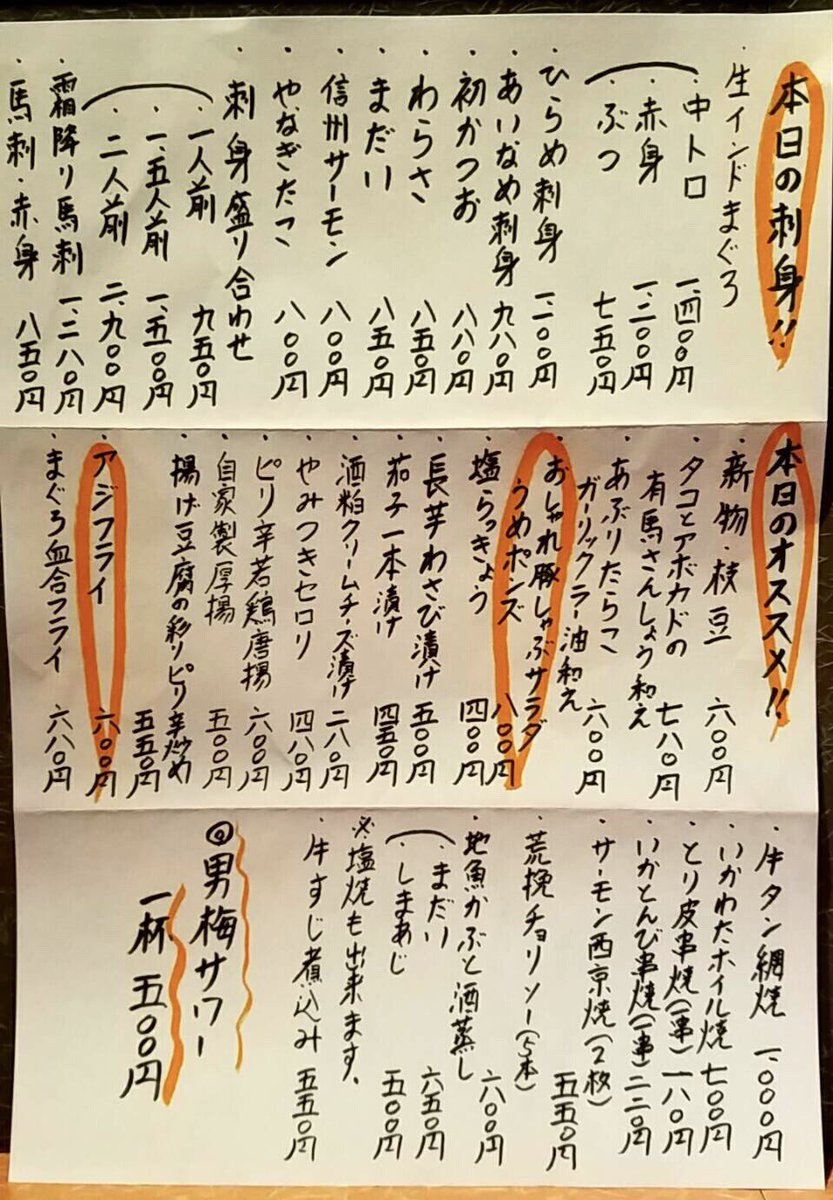 本日の刺身!!
・生インドまぐろ
・中トロ 一、四〇〇円
・赤身 一、二〇〇円
・ぶつ 七五〇円
・ひらめ刺身 一、二〇〇円
・あいなめ刺身 九八〇円
・初かつお 八八〇円
・わらさ 八五〇円
・まだい 八五〇円
・信州サーモン 八〇〇円
・やなぎたこ 八〇〇円
・刺身盛り合わせ
・一人前 九五〇円
・一、五人前 一、五〇〇円
・二人前 二、九〇〇円
・霜降り馬刺 一、二八〇円
・馬刺・赤身 八五〇円
本日のオススメ!!
・新物・枝豆 六〇〇円
・タコとアボカドの
有馬さんしょう和え 七八〇円
・あぶりたらこ
ガーリックラー油和え 六〇〇円
・おしゃれ豚しゃぶサラダ
うめポンズ 八〇〇円
・塩らっきょう 四〇〇円
・長芋わさび漬け 五〇〇円
・茄子一本漬け 四五〇円
・酒粕クリームチーズ漬け 二八〇円
・やみつきセロリ 四八〇円
・ピリ辛若鶏唐揚 六〇〇円
・自家製厚揚 五〇〇円
・揚げ豆腐の彩りピリ辛炒め 五五〇円
・アジフライ 六〇〇円
・まぐろ血合フライ 六八〇円
・牛タン網焼 一、〇〇〇円
・いかわたホイル焼 七〇〇円
・とり皮串焼(一串) 一八〇円
・いかとんび串焼(一串) 二二〇円
・サーモン西京焼(2枚) 五五〇円
・荒挽チョリソー(5本) 六〇〇円
・地魚かぶと酒蒸し
・まだい 六五〇円
・しまあじ 五〇〇円
※塩焼も出来ます。
・牛すじ煮込み 五五〇円
◎男梅サワー
一杯 五〇〇円